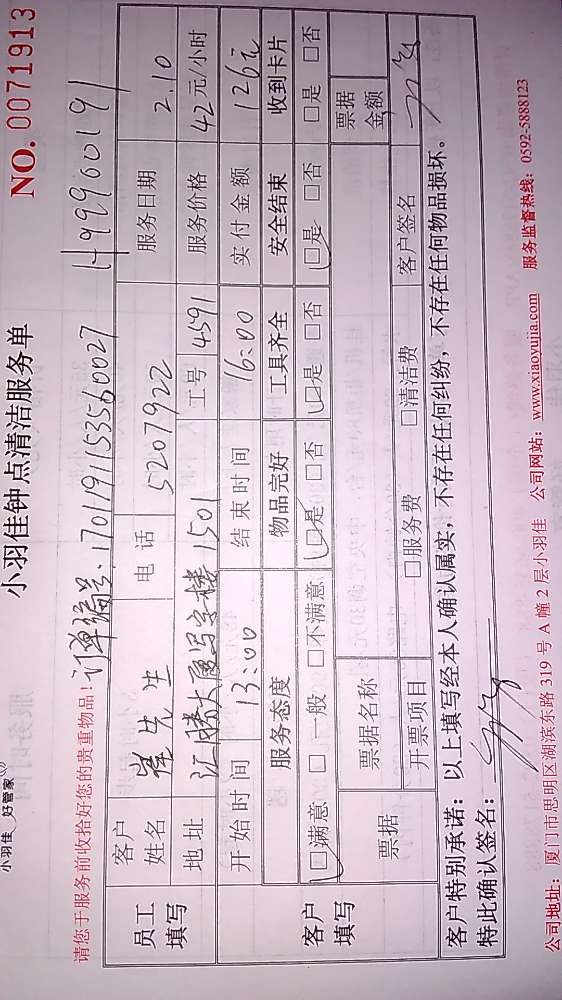 小羽佳 好管家
小羽佳钟点清洁服务单
NO. 0071913
请您于服务前收拾好您的贵重物品！订单编号：1701191153560027
员工填写 客户姓名 崔先生 电话 5207922 服务日期 2.10
地址 汇腾大厦写字楼1501 工号 4591 服务价格 42元/小时
开始时间 13:00 结束时间 16:00 实付金额 126元
客户填写 服务态度 物品完好 工具齐全 安全结束 收到卡片
□满意 □一般 □不满意 □是 □否 □是 □否 □是 □否 □是 □否
票据 票据名称 票据金额
开票项目 □服务费 □清洁费 客户签名
客户特别承诺：以上填写经本人确认属实，不存在任何纠纷，不存在任何物品损坏。
特此确认签名：
公司地址：厦门市思明区湖滨东路 319 号 A 幢 2 层小羽佳 公司网站：www.xiaoyujia.com 服务监督热线：0592-5888123